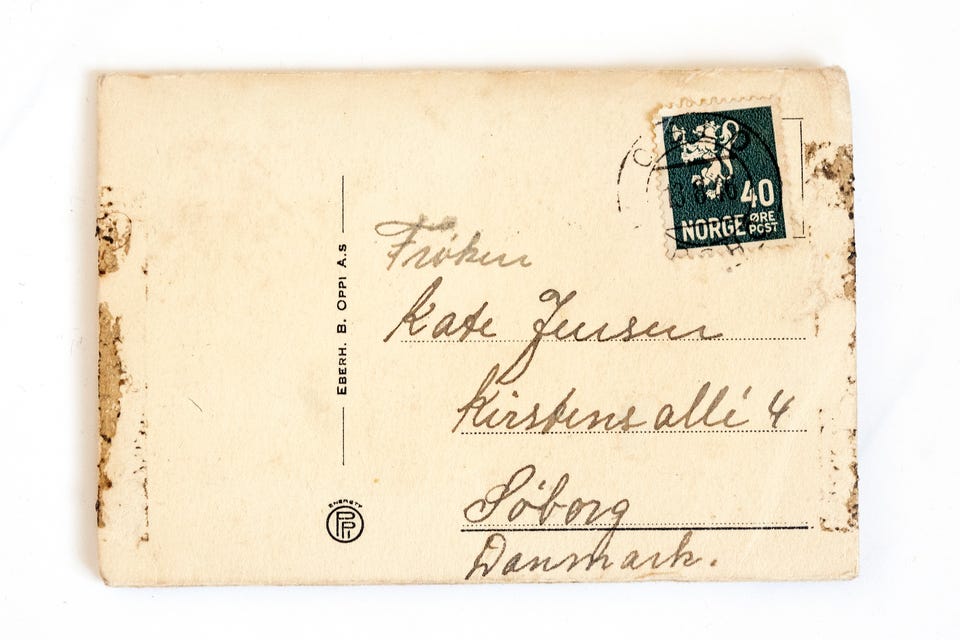 40
NORGE ØRE POST
EBERH. B. OPPI A.S
ENERETT
Frøken
Kate Jensen
Kirstens allé 4
Søborg
Danmark.